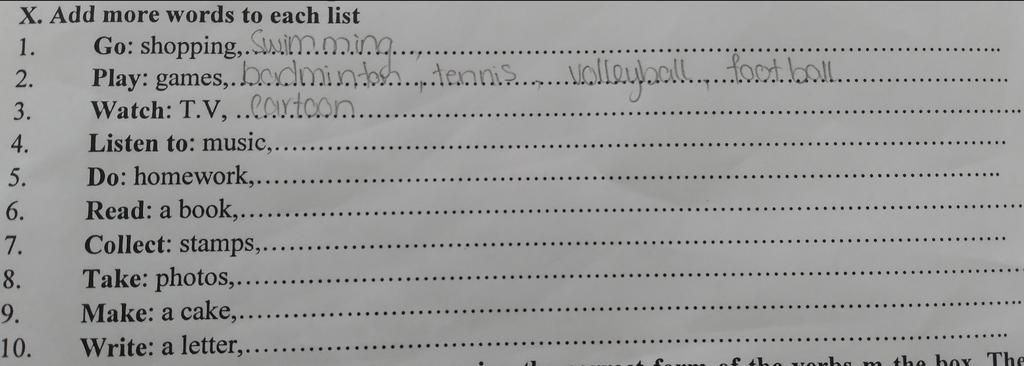 X. Add more words to each list
1. Go: shopping, swimming
2. Play: games, badminton, tennis, volleyball, football
3. Watch: T.V, cartoon
4. Listen to: music,
5. Do: homework,
6. Read: a book,
7. Collect: stamps,
8. Take: photos,
9. Make: a cake,
10. Write: a letter,
form of the verbs m the box. The